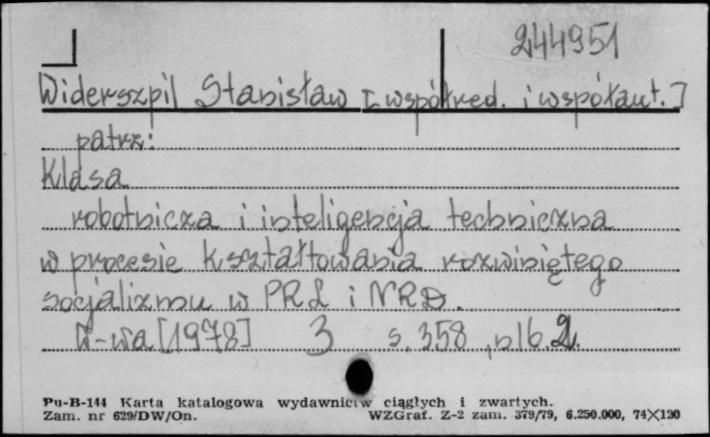 244951
Widerszpil Stanisław [współred. i współaut.]
patrz:
Klasa
robotnicza i inteligencja techniczna
w procesie kształtowania rozwiniętego
socjalizmu w PRL i NRD.
W-wa [1978] 3 s. 358, nlb. 2.
Pu-B-144 Karta katalogowa wydawnictw ciągłych i zwartych.
Zam. nr 629/DW/On. WZGraf. Z-2 zam. 379/79, 6.250.000, 74×120